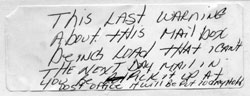 THIS LAST WARNING
ABOUT THIS MAIL BOX
BEING LOAD THAT I CAN'T
THE NEXT DAY MAIL IN.
YOU PICK IT UP AT
POST OFFICE IT WILL BE OUT